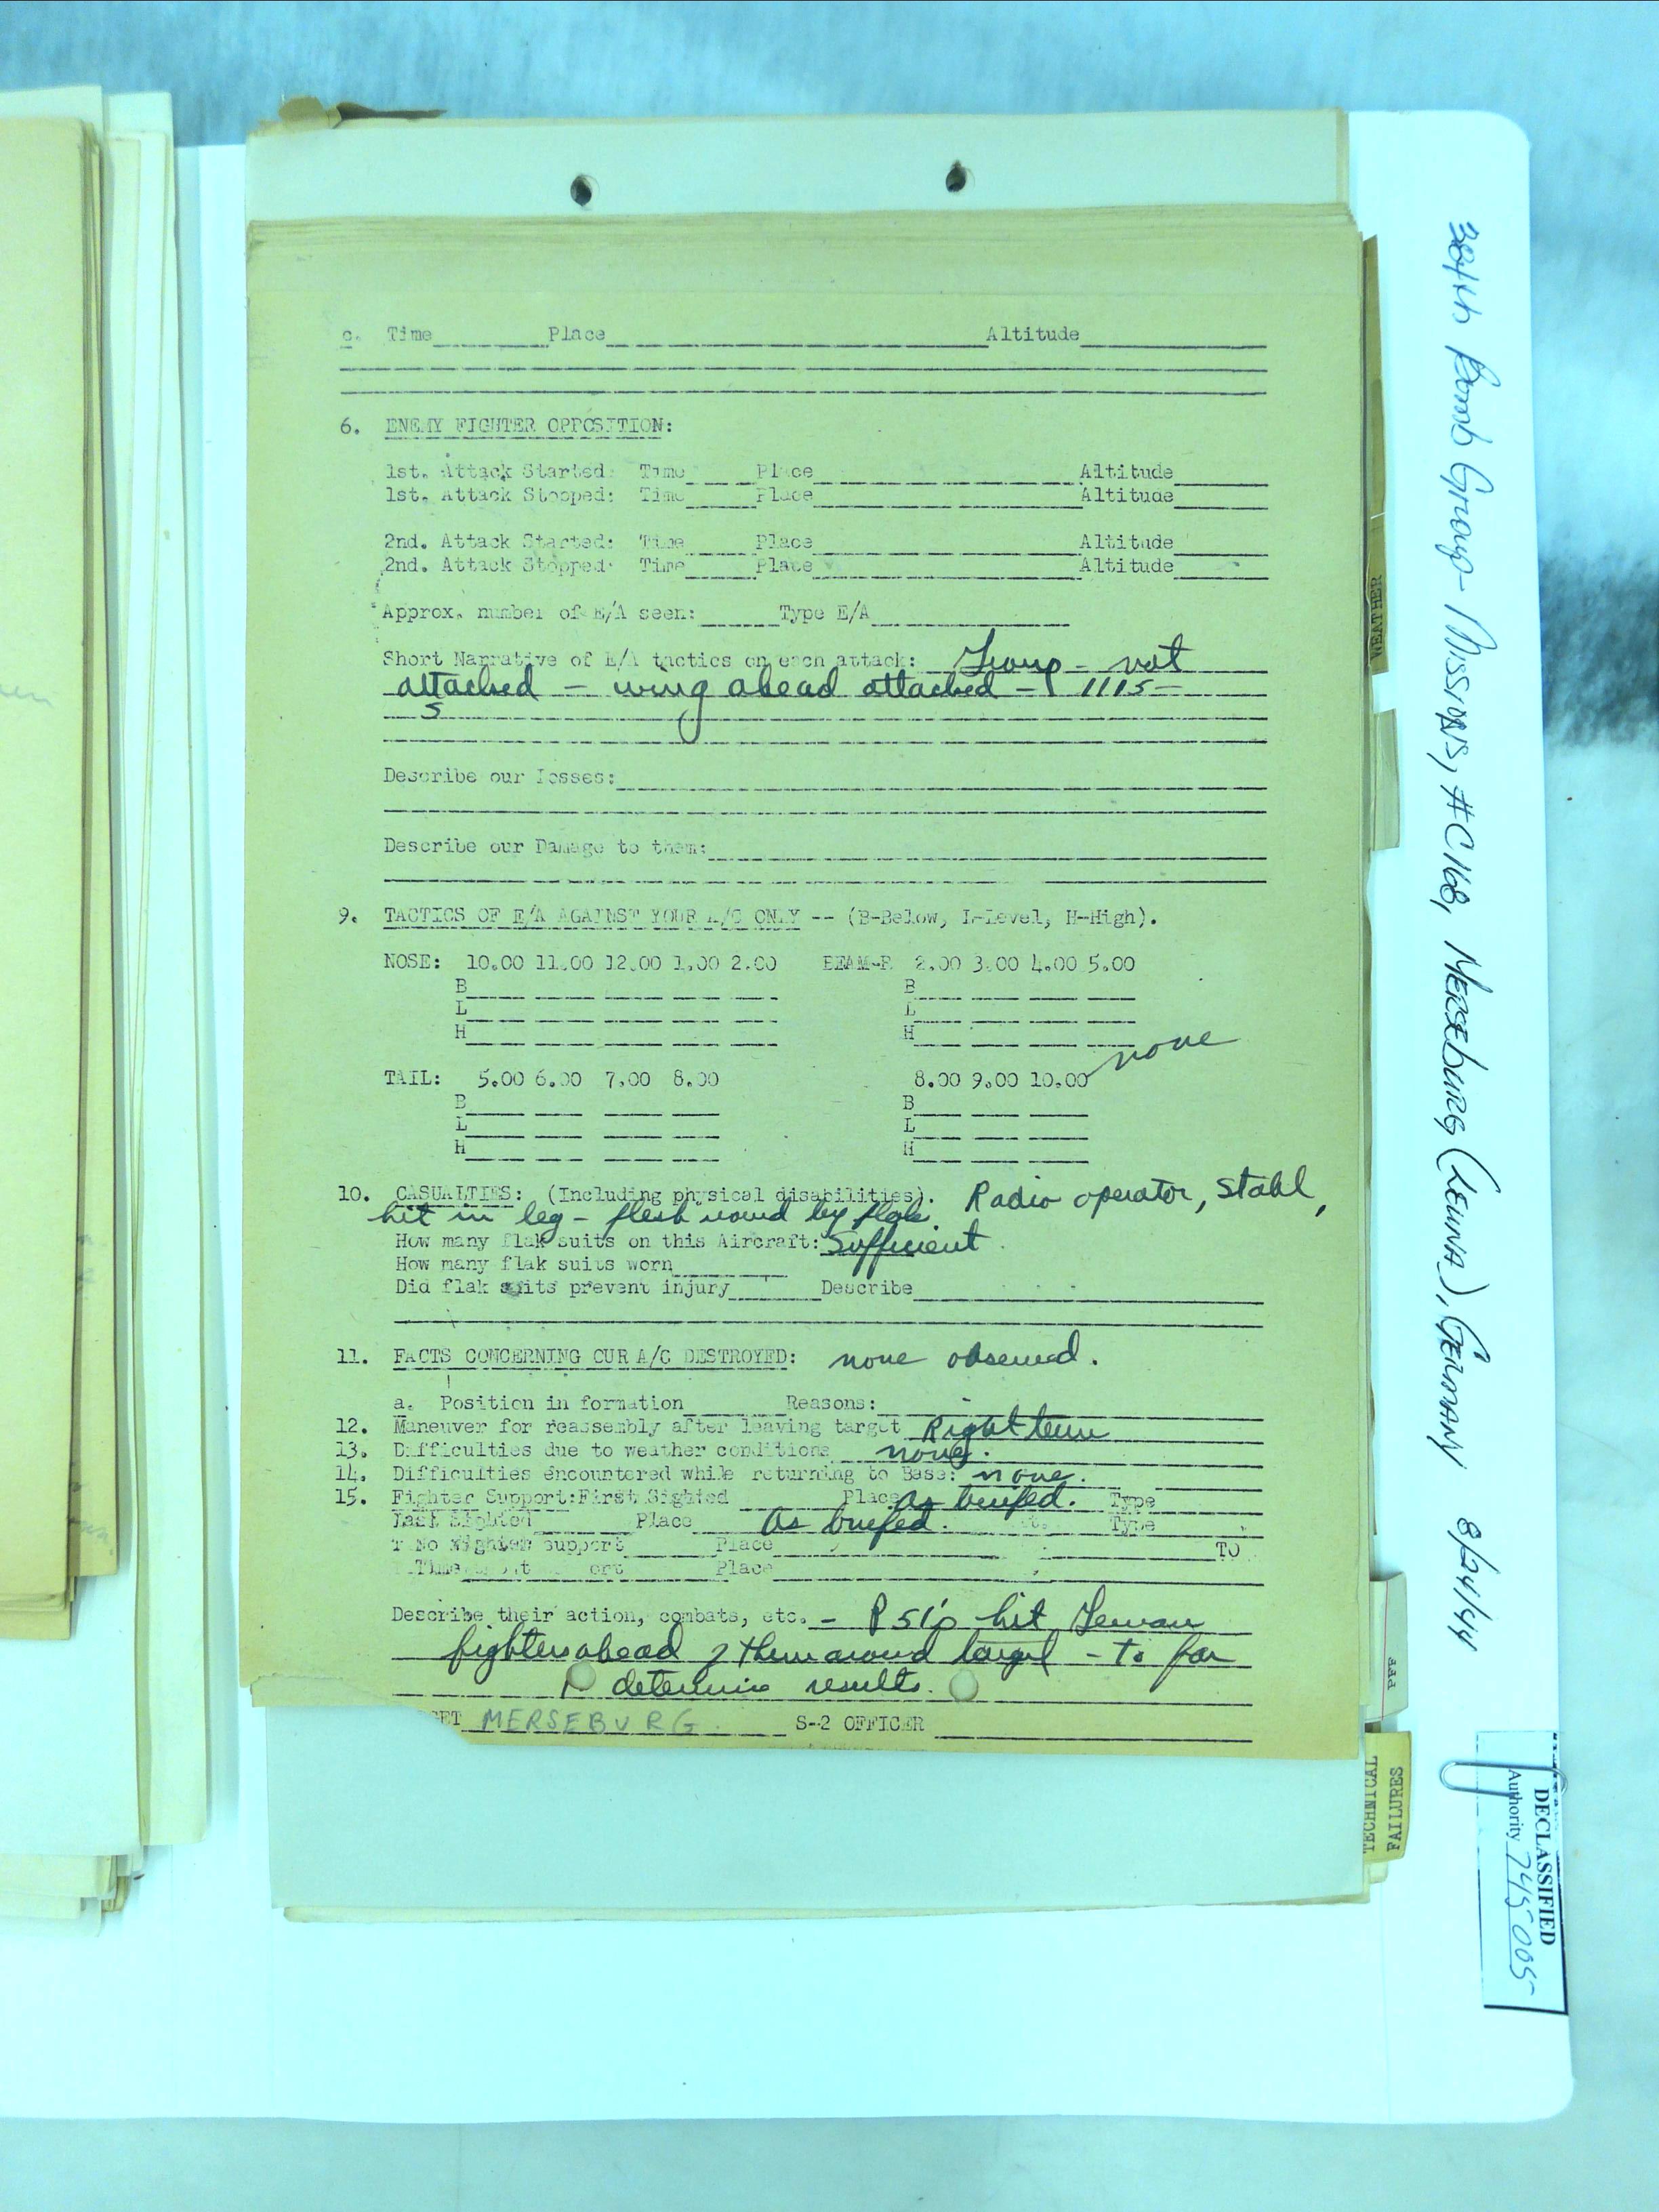 c. Time Place Altitude
6. ENEMY FIGHTER OPPOSITION:
1st. Attack Started: Time Place Altitude
1st. Attack Stopped: Time Place Altitude
2nd. Attack Started: Time Place Altitude
2nd. Attack Stopped: Time Place Altitude
Approx. number of E/A seen: Type E/A
Short Narrative of E/A tactics on each attack: Group - not
attacked - wing ahead attacked - 1115-
5
Describe our losses:
Describe our Damage to them:
9. TACTICS OF E/A AGAINST YOUR A/C ONLY -- (B-Below, L-Level, H-High).
NOSE: 10.00 11.00 12.00 1.00 2.00 BEAM-R 2.00 3.00 4.00 5.00
B B
L L
H H
none
TAIL: 5.00 6.00 7.00 8.00 8.00 9.00 10.00
B B
L L
H H
10. CASUALTIES: (Including physical disabilities). Radio operator, Stahl,
hit in leg - flesh wound by flak.
How many flak suits on this Aircraft: Sufficient
How many flak suits worn
Did flak suits prevent injury Describe
11. FACTS CONCERNING OUR A/C DESTROYED: none observed.
a. Position in formation Reasons:
12. Maneuver for reassembly after leaving target Right turn
13. Difficulties due to weather conditions none.
14. Difficulties encountered while returning to Base: none.
15. Fighter Support: First Sighted Place as briefed. Type
Last Sighted Place as briefed. Type
No Fighter support Place TO
Time Place
Describe their action, combats, etc. - P51's hit German
fighters ahead of them around target - to far
determine results.
MERSEBURG S-2 OFFICER
384th Bomb Group - Missions, #C168, MERSEBURG (LEUNA), GERMANY 8/24/44
WEATHER
TECHNICAL
FAILURES
DECLASSIFIED
Authority 745005